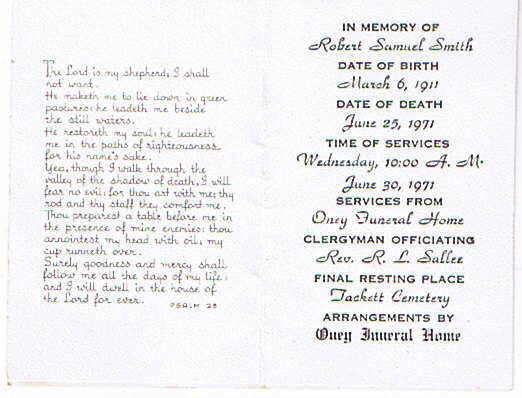 The Lord is my shepherd; I shall
not want.
He maketh me to lie down in green
pastures: he leadeth me beside
the still waters.
He restoreth my soul: he leadeth
me in the paths of righteousness
for his name's sake.
Yea, though I walk through the
valley of the shadow of death, I will
fear no evil: for thou art with me; thy
rod and thy staff they comfort me.
Thou preparest a table before me in
the presence of mine enemies: thou
annointest my head with oil; my
cup runneth over.
Surely goodness and mercy shall
follow me all the days of my life:
and I will dwell in the house of
the Lord for ever.
PSALM 23
IN MEMORY OF
Robert Samuel Smith
DATE OF BIRTH
March 6, 1911
DATE OF DEATH
June 25, 1971
TIME OF SERVICES
Wednesday, 10:00 A. M.
June 30, 1971
SERVICES FROM
Oney Funeral Home
CLERGYMAN OFFICIATING
Rev. R. L. Sallee
FINAL RESTING PLACE
Tackett Cemetery
ARRANGEMENTS BY
Oney Funeral Home